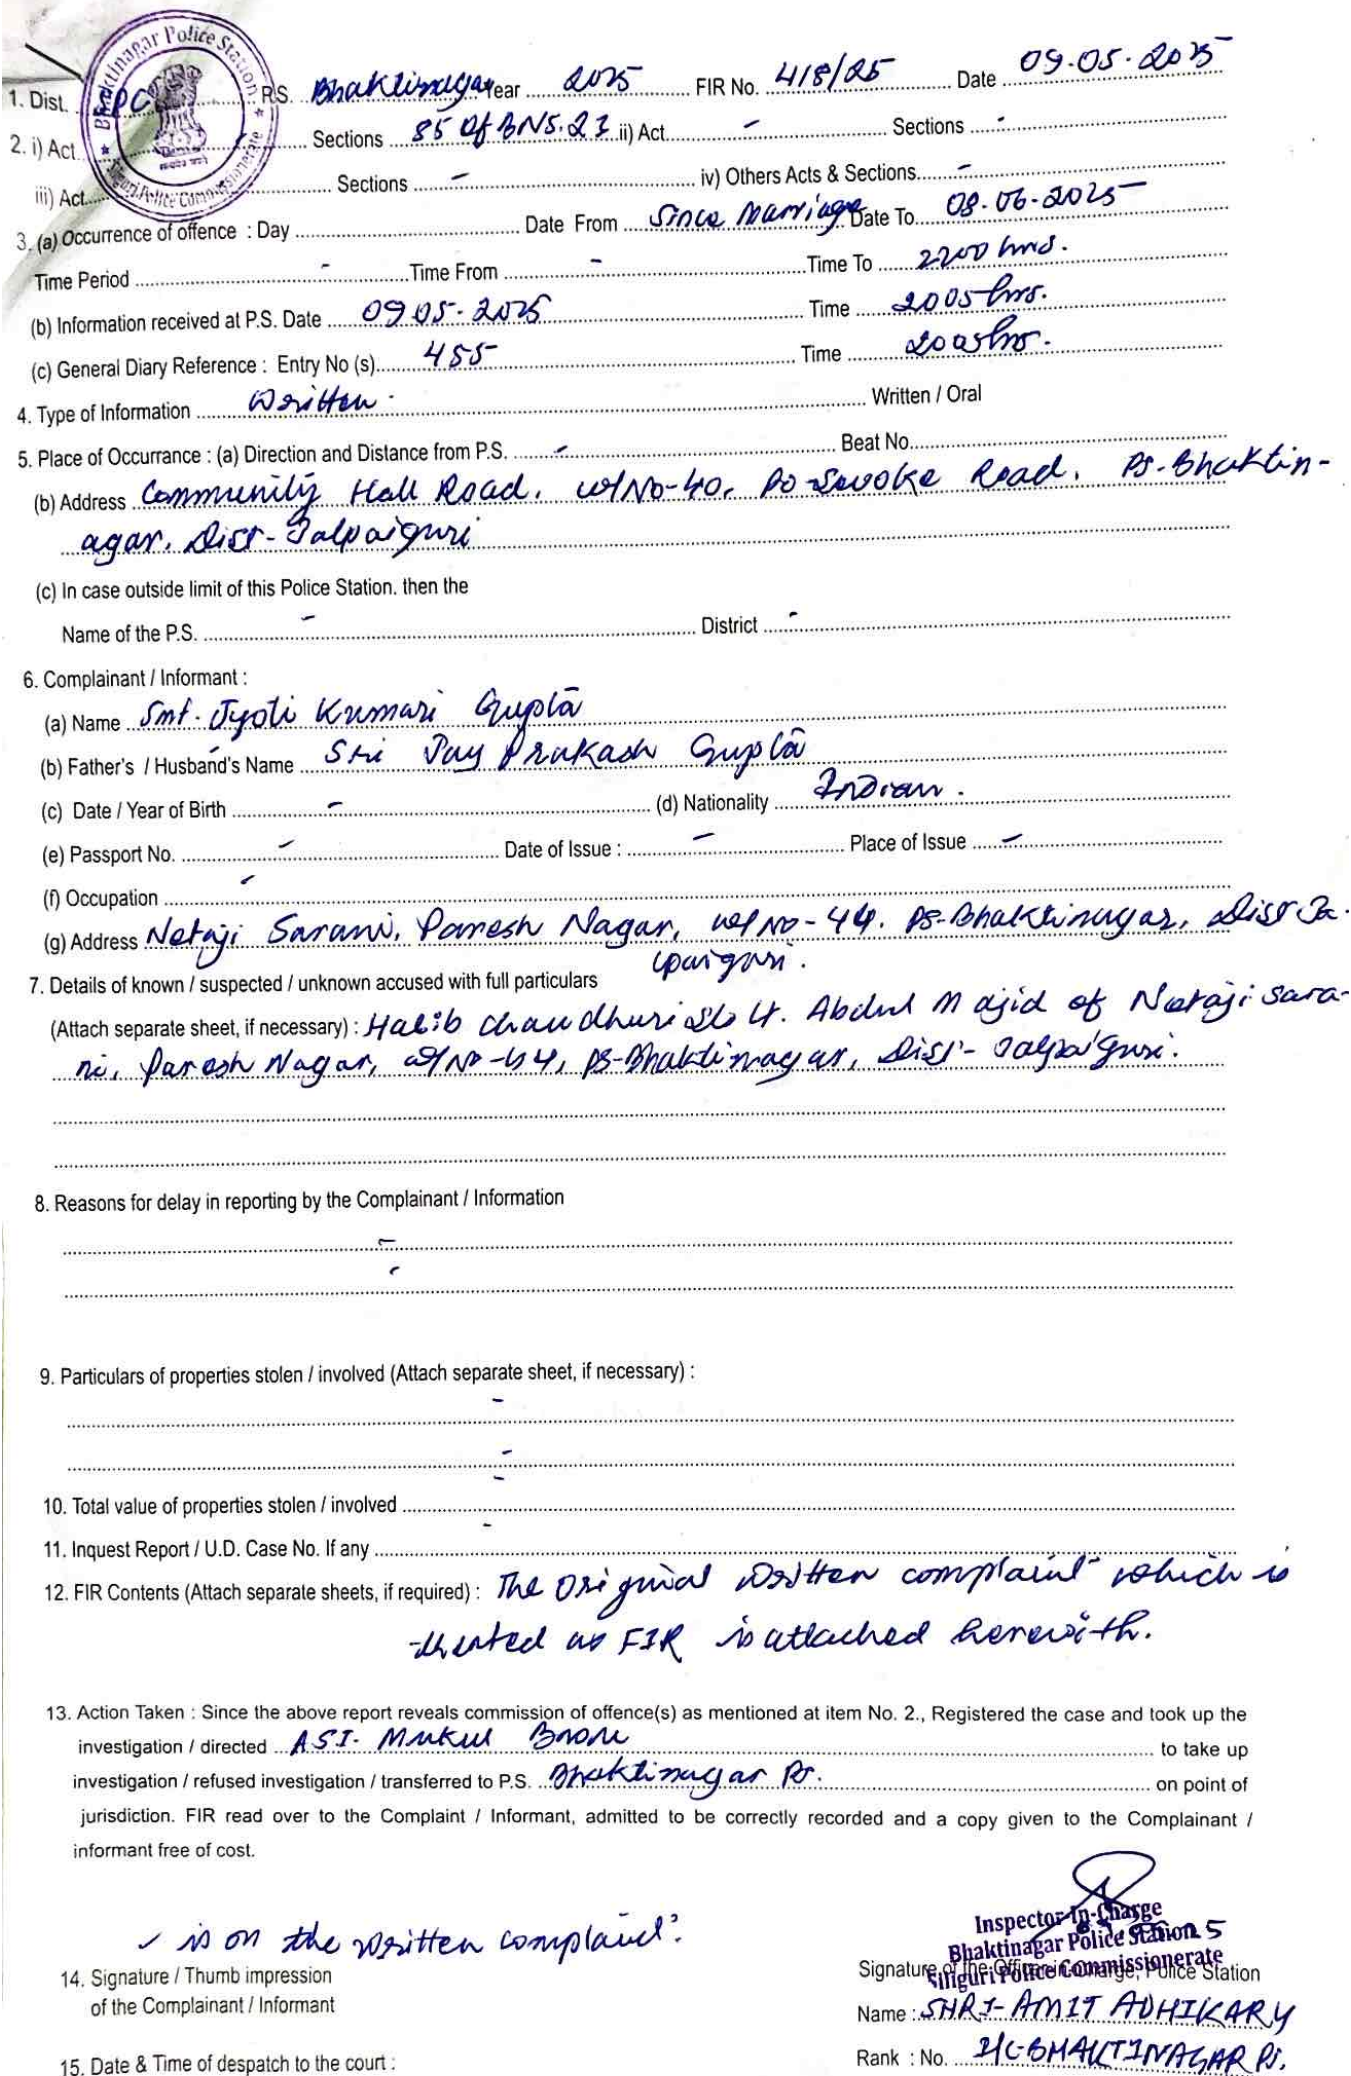 Bhaktinagar Police Station
Siliguri Police Commissionerate
1. Dist. SPC P.S. Bhaktinagar Year 2025 FIR No. 418/25 Date 09.05.2025
2. i) Act Sections 85 Of BNS.23 ii) Act - Sections -
iii) Act Sections - iv) Others Acts & Sections -
3. (a) Occurrence of offence : Day Date From Since Marriage Date To 08.06.2025
Time Period - Time From - Time To 2200 hrs.
(b) Information received at P.S. Date 09 05. 2025 Time 2005 hrs.
(c) General Diary Reference : Entry No (s) 455 Time 2005 hrs.
4. Type of Information Written. Written / Oral
5. Place of Occurrance : (a) Direction and Distance from P.S. - Beat No.
(b) Address Community Hall Road, W/No-40, Po-Sevoke Road, PS-Bhaktin-
agar, Dist-Jalpaiguri
(c) In case outside limit of this Police Station. then the
Name of the P.S. - District -
6. Complainant / Informant :
(a) Name Smt. Jyoti Kumari Gupta
(b) Father's / Husband's Name Sri Jay Prakash Gupta
(c) Date / Year of Birth - (d) Nationality Indian.
(e) Passport No. - Date of Issue : - Place of Issue -
(f) Occupation -
(g) Address Netaji Sarani, Paresh Nagar, W/No-44. PS-Bhaktinagar, Dist Ja-
lpaiguri.
7. Details of known / suspected / unknown accused with full particulars
(Attach separate sheet, if necessary) : Habib Chaudhuri S/o Lt. Abdul Majid of Netaji Sara-
ni, Paresh Nagar, W/No-44, PS-Bhaktinagar, Dist- Jalpaiguri.
8. Reasons for delay in reporting by the Complainant / Information
-
-
9. Particulars of properties stolen / involved (Attach separate sheet, if necessary) :
-
-
10. Total value of properties stolen / involved -
11. Inquest Report / U.D. Case No. If any -
12. FIR Contents (Attach separate sheets, if required) : The Original written complaint which is
treated as FIR is attached herewith.
13. Action Taken : Since the above report reveals commission of offence(s) as mentioned at item No. 2., Registered the case and took up the
investigation / directed ASI. Mukul to take up
investigation / refused investigation / transferred to P.S. Bhaktinagar PS. on point of
jurisdiction. FIR read over to the Complaint / Informant, admitted to be correctly recorded and a copy given to the Complainant /
informant free of cost.
is on the written complaint.
14. Signature / Thumb impression
of the Complainant / Informant
15. Date & Time of despatch to the court :
Inspector-In-Charge
Bhaktinagar Police Station
Siliguri Police Commissionerate
Signature of the Officer in Charge, Police Station
Name : SHRI-AMIT ADHIKARY
Rank : No. I/C-BHAKTINAGAR PS.